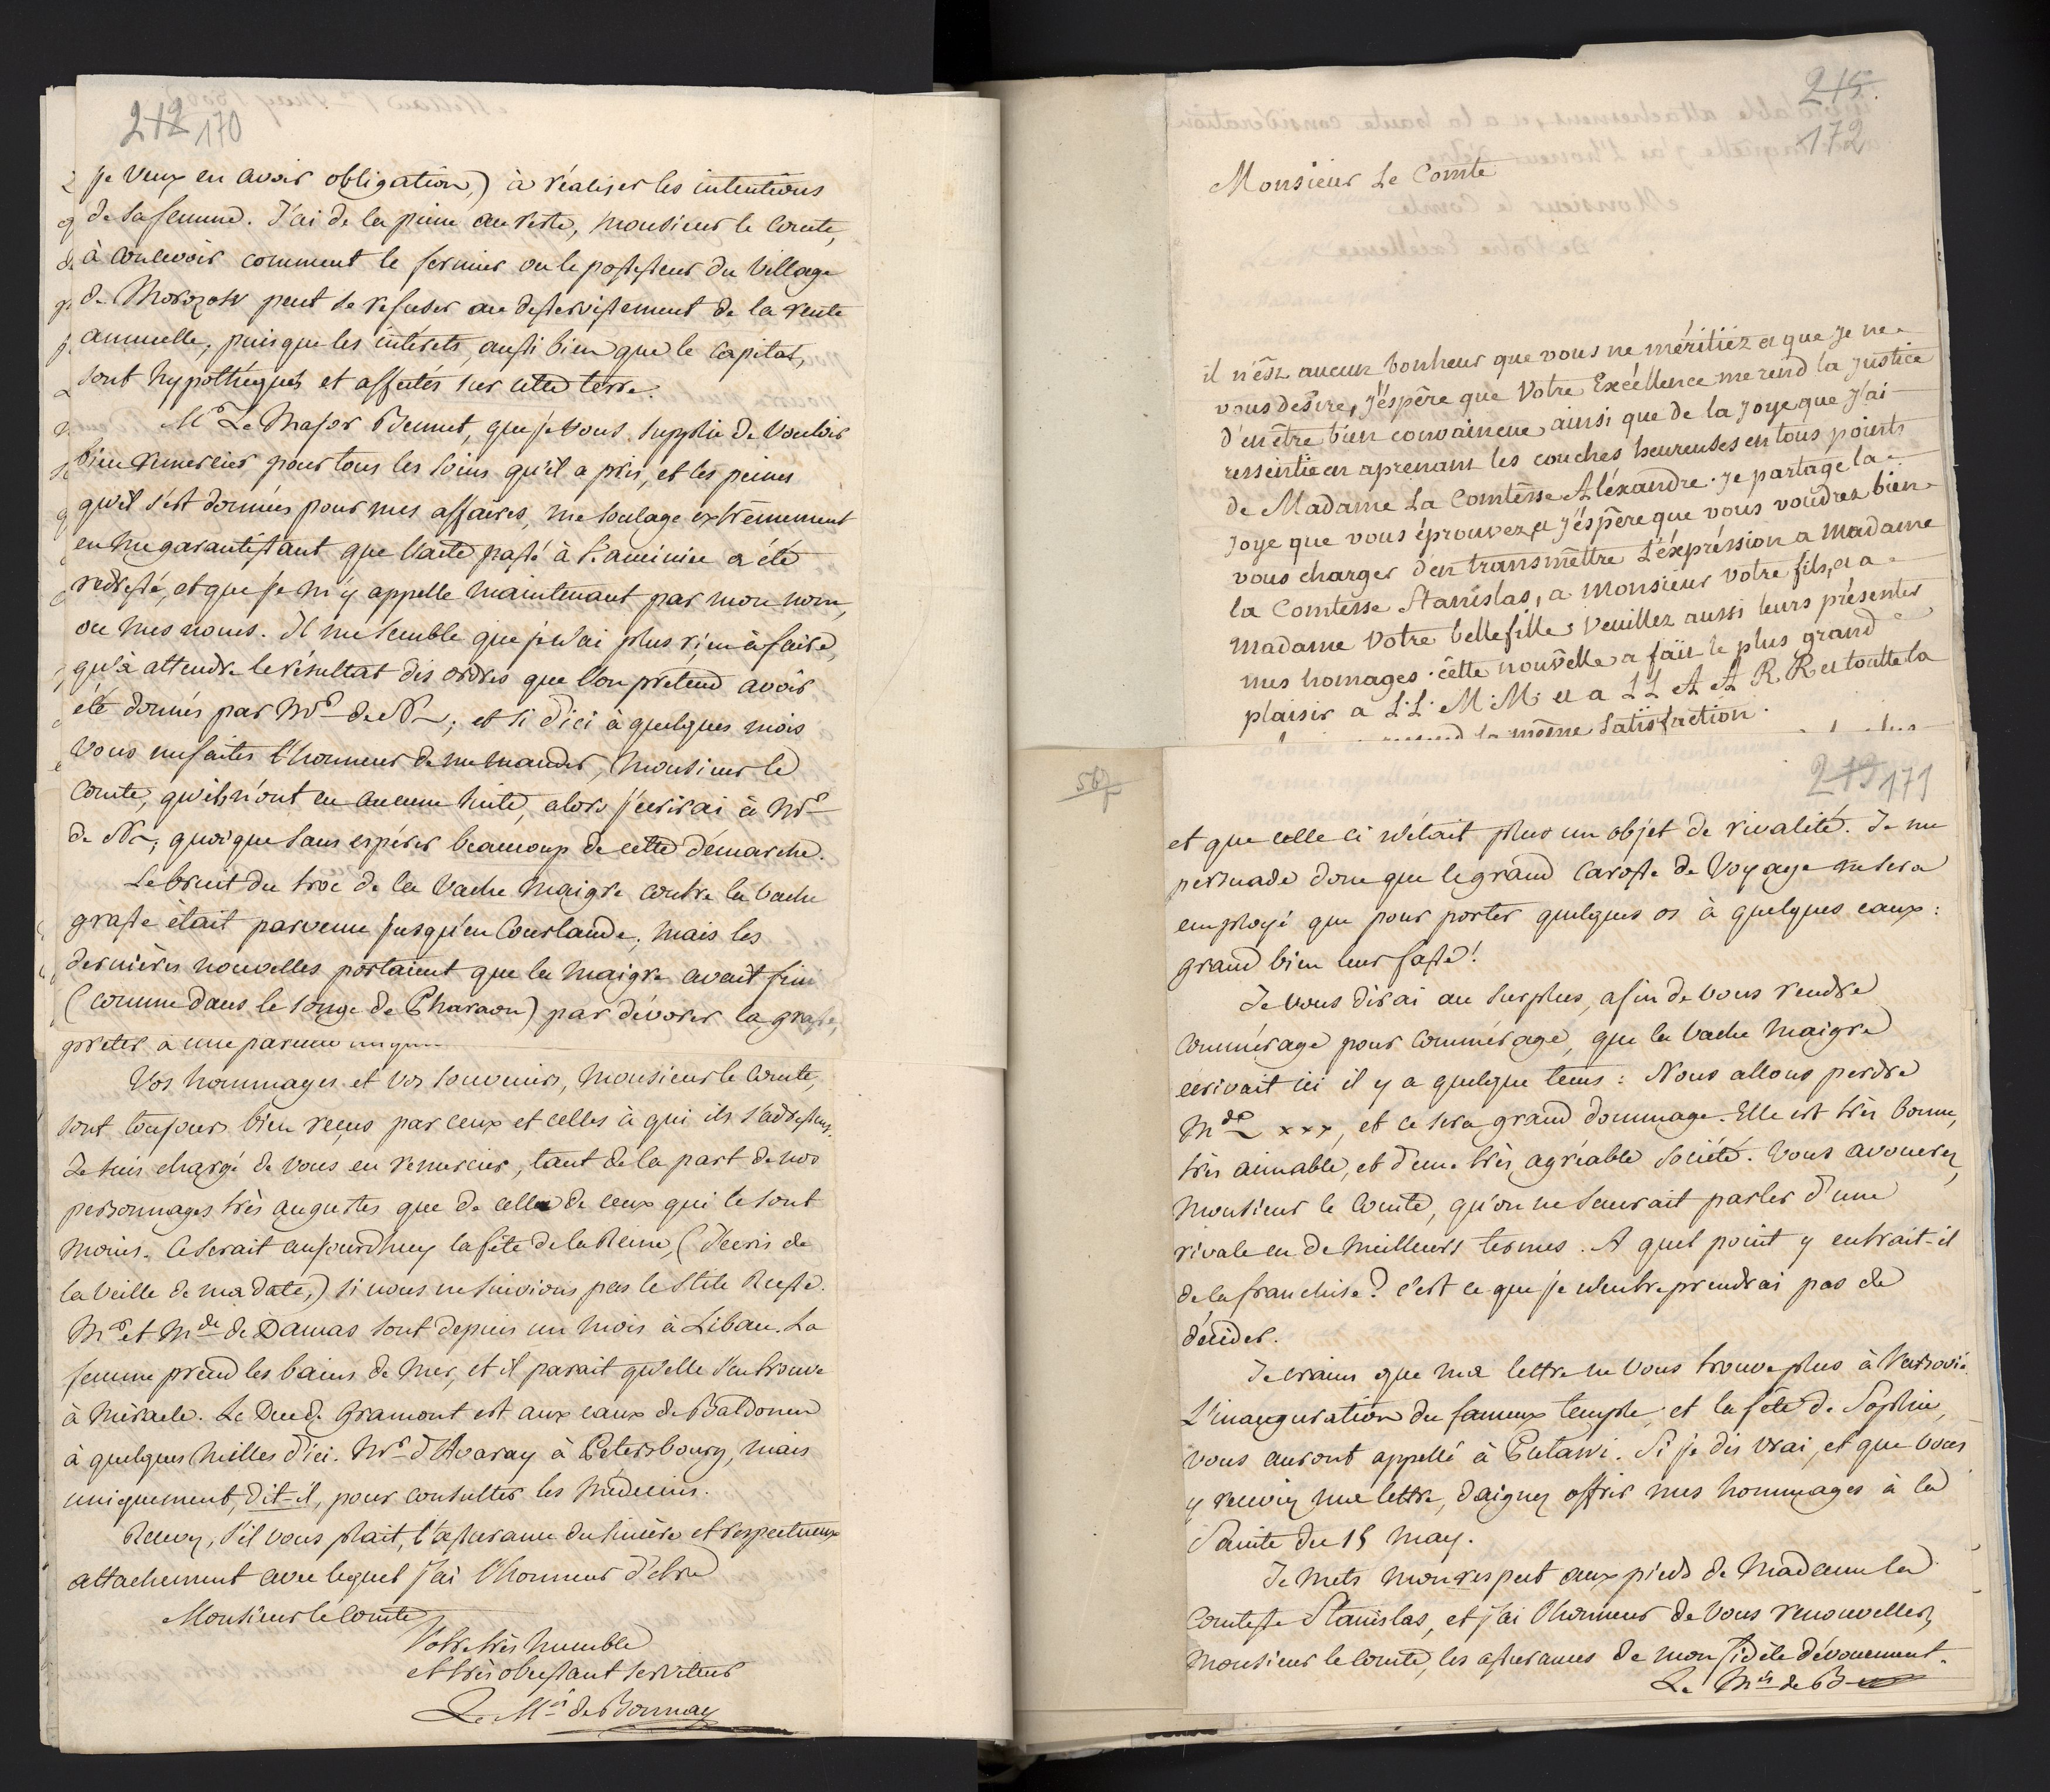 212 170
je veux en avoir obligation,) à réaliser les intentions
de sa femme. J'ai de la peine au reste, monsieur le Comte,
à concevoir comment le fermier ou le possesseur du village
de Morozow peut se refuser au desservissement de la rente
annuelle, puisque les intérets, aussi bien que le Capital,
sont hypothéqués et affectés sur cette terre.
Mr Le Major Bennet, que je vous supplie de vouloir
bien remercier pour tous les soins qu'il a pris, et les peines
qu'il s'est données pour mes affaires, me soulage extrêmement
en me garantissant que l'acte passé à Kaminiec a été
redressé, et que je m'y appelle maintenant par mon nom,
ou mes noms. Il me semble que je n'ai plus rien à faire,
qu'à attendre le résultat des ordres que l'on prétend avoir
été donnés par Mr de N~; et si d'ici à quelques mois
vous me faites l'honneur de me mander, Monsieur le
Comte, qu'ils n'ont eu aucune suite, alors j'écrirai à Mr
de N~, quoique sans espérer beaucoup de cette démarche.
Le bruit du troc de la Vache maigre contre la vache
grasse était parvenu jusqu'en Courlande; mais les
dernières nouvelles portaient que la maigre avait fini
(comme dans le songe de Pharaon) par dévorer la grasse,
Vos hommages et vos souvenirs, Monsieur le Comte,
sont toujours bien reçus par ceux et celles à qui ils s'adressent.
Je suis chargé de vous en remercier, tant de la part de nos
personnages très augustes que de celle de ceux qui le sont
moins. Ce serait aujourdhuy la fête de la Reine, (j'écris de
la veille de ma date,) si nous ne suivions pas le Stile Russe.
Mr et Mde de Damas sont depuis un mois à Libau. La
femme prend les bains de mer, et il parait qu'elle s'en trouve
à miracle. Le Duc de Gramont est aux eaux de Baldonen
à quelques milles d'ici. Mr d'Avaray à Pétersbourg, mais
uniquement, dit-il, pour consulter les Médecins.
Recevez, s'il vous plait, l'assurance du sincère et respectueux
attachement avec lequel j'ai l'honneur d'être
Monsieur le Comte
Votre très humble
et très obéissant serviteur
Le Mis de Bonnay
215.
172
Monsieur Le Comte
il n'ést aucun bonheur que vous ne méritiéz et que Je ne
vous désire, J'éspêre que Votre Excéllence me rend la Justice
d'en être bien convaincue, ainsi que de la Joye que J'ai
ressentie en aprenant les couches heureuses en tous points
de Madame La Comtêsse Aléxandre. Je partage la
Joye que vous éprouvez, et J'éspêre que vous voudrez bien
vous charger d'en transmêttre L'éxpréssion a Madame
la Comtesse Stanislas, a Monsieur votre fils, et a
Madame Votre belle fille; Veuillez aussi leurs présenter
mes homages. cêtte nouvêlle a fait le plus grand
plaisir a L.L. M.M. et a LL A A R R et toutte la
la même Satisfaction.
567
213 171
et que celle ci n'était plus un objet de rivalité. Je me
persuade donc que le grand Carosse de Voyage ne sera
employé que pour porter quelques os à quelques eaux:
grand bien leur fasse!
Je vous dirai au surplus, afin de vous rendre
Commérage pour Commérage, que la Vache Maigre
écrivait ici il y a quelque tems: Nous allons perdre
Mde xxx, et ce sera grand dommage. Elle est très bonne,
très aimable, et d'une très agréable Société. Vous avouerez,
Monsieur le Comte, qu'on ne saurait parler d'une
rivale en de meilleurs termes. A quel point y entrait-il
de la franchise? c'est ce que je n'entreprendrai pas de
décider.
Je crains que ma lettre ne vous trouve plus à Varsovie.
L'inauguration du fameux temple, et la fête de Sophie,
vous auront appellé à Pulawi. Si je dis vrai, et que vous
y receviez ma lettre, daignez offrir mes hommages à la
Sainte du 15 May.
Je mets mon respect aux pieds de Madame la
Comtesse Stanislas, et j'ai l'honneur de vous renouveller,
Monsieur le Comte, les assurances de mon fidèle dévouement.
Le Mis de B